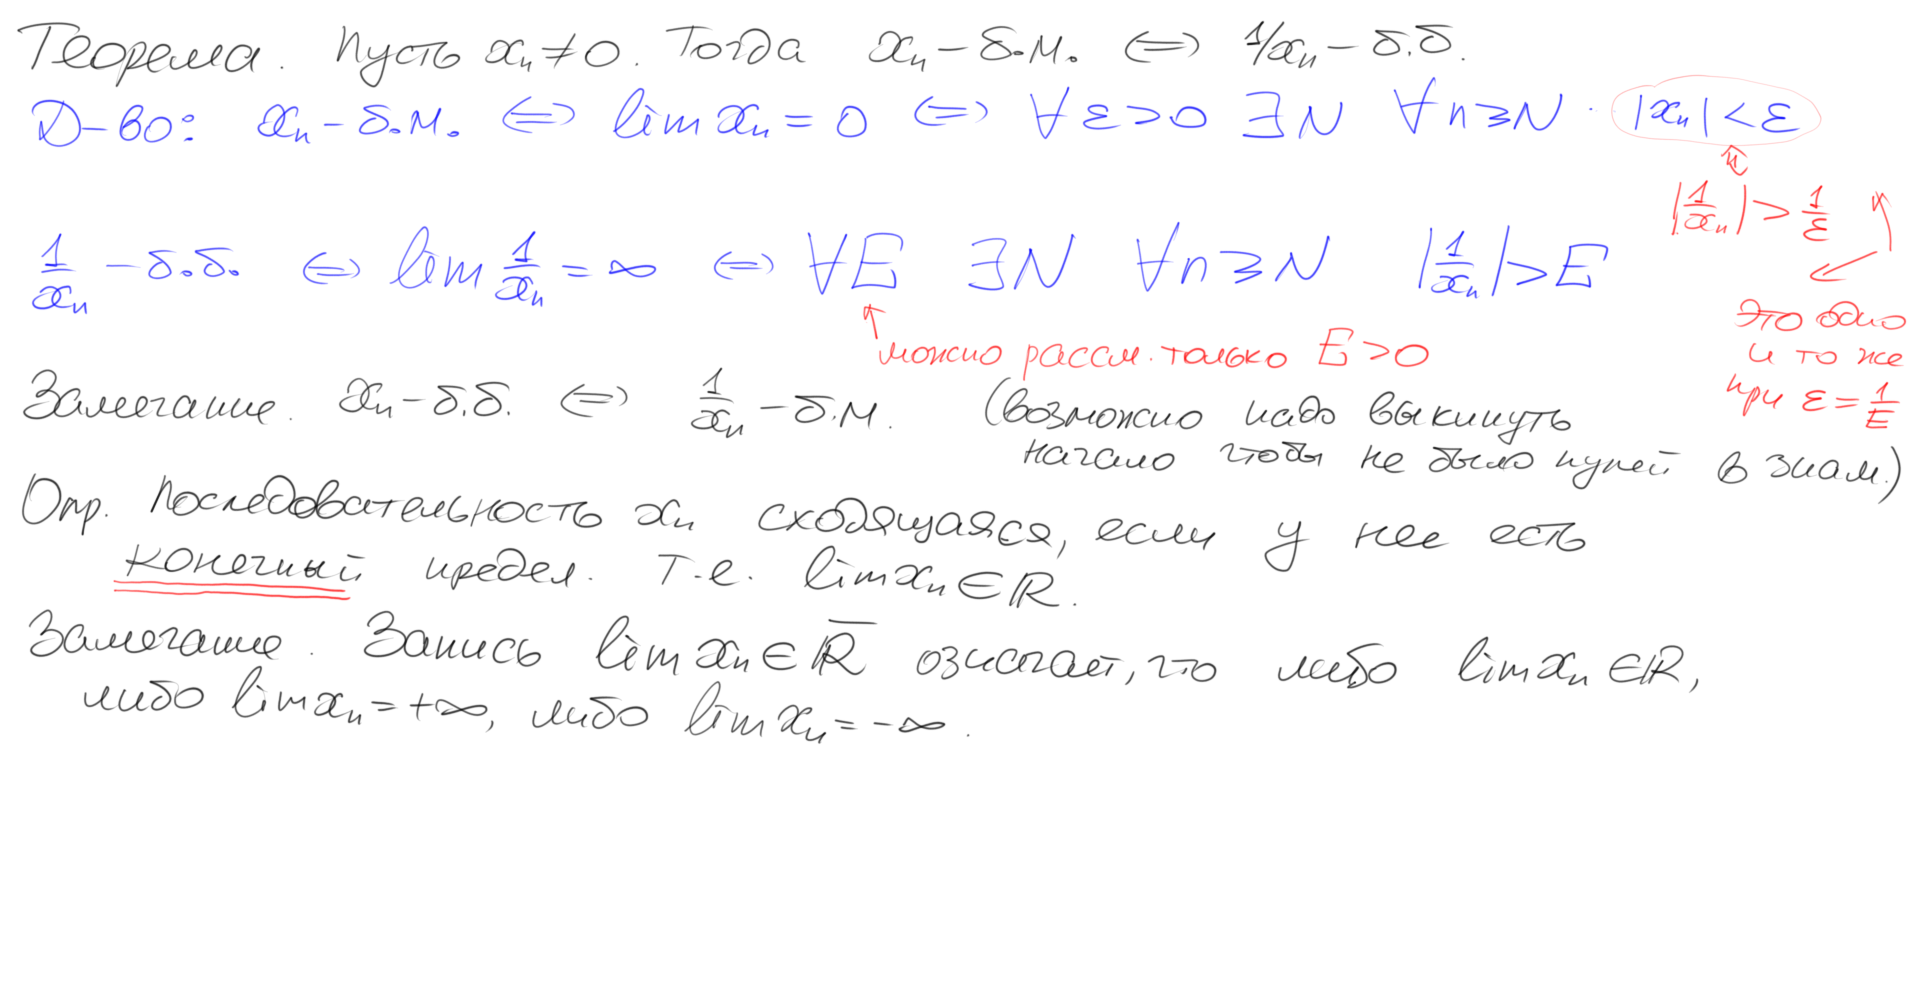 Теорема. Пусть xₙ ≠ 0. Тогда xₙ – б.м. ⟺ 1/xₙ – б.б.
Д-во: xₙ – б.м. ⟺ lim xₙ = 0 ⟺ ∀ε>0 ∃N ∀n≥N |xₙ| < ε
⇕
|1/xₙ| > 1/ε
1/xₙ – б.б. ⟺ lim 1/xₙ = ∞ ⟺ ∀E ∃N ∀n≥N |1/xₙ| > E
можно рассм. только E > 0
это одно
и то же
при ε = 1/E
Замечание. xₙ – б.б. ⟺ 1/xₙ – б.м. (возможно надо выкинуть
начало чтобы не было нулей в знам.)
Опр. Последовательность xₙ сходящаяся, если у нее есть
конечный предел. т.е. lim xₙ ∈ ℝ.
Замечание. Запись lim xₙ ∈ ℝ̅ означает, что либо lim xₙ ∈ ℝ,
либо lim xₙ = +∞, либо lim xₙ = -∞.